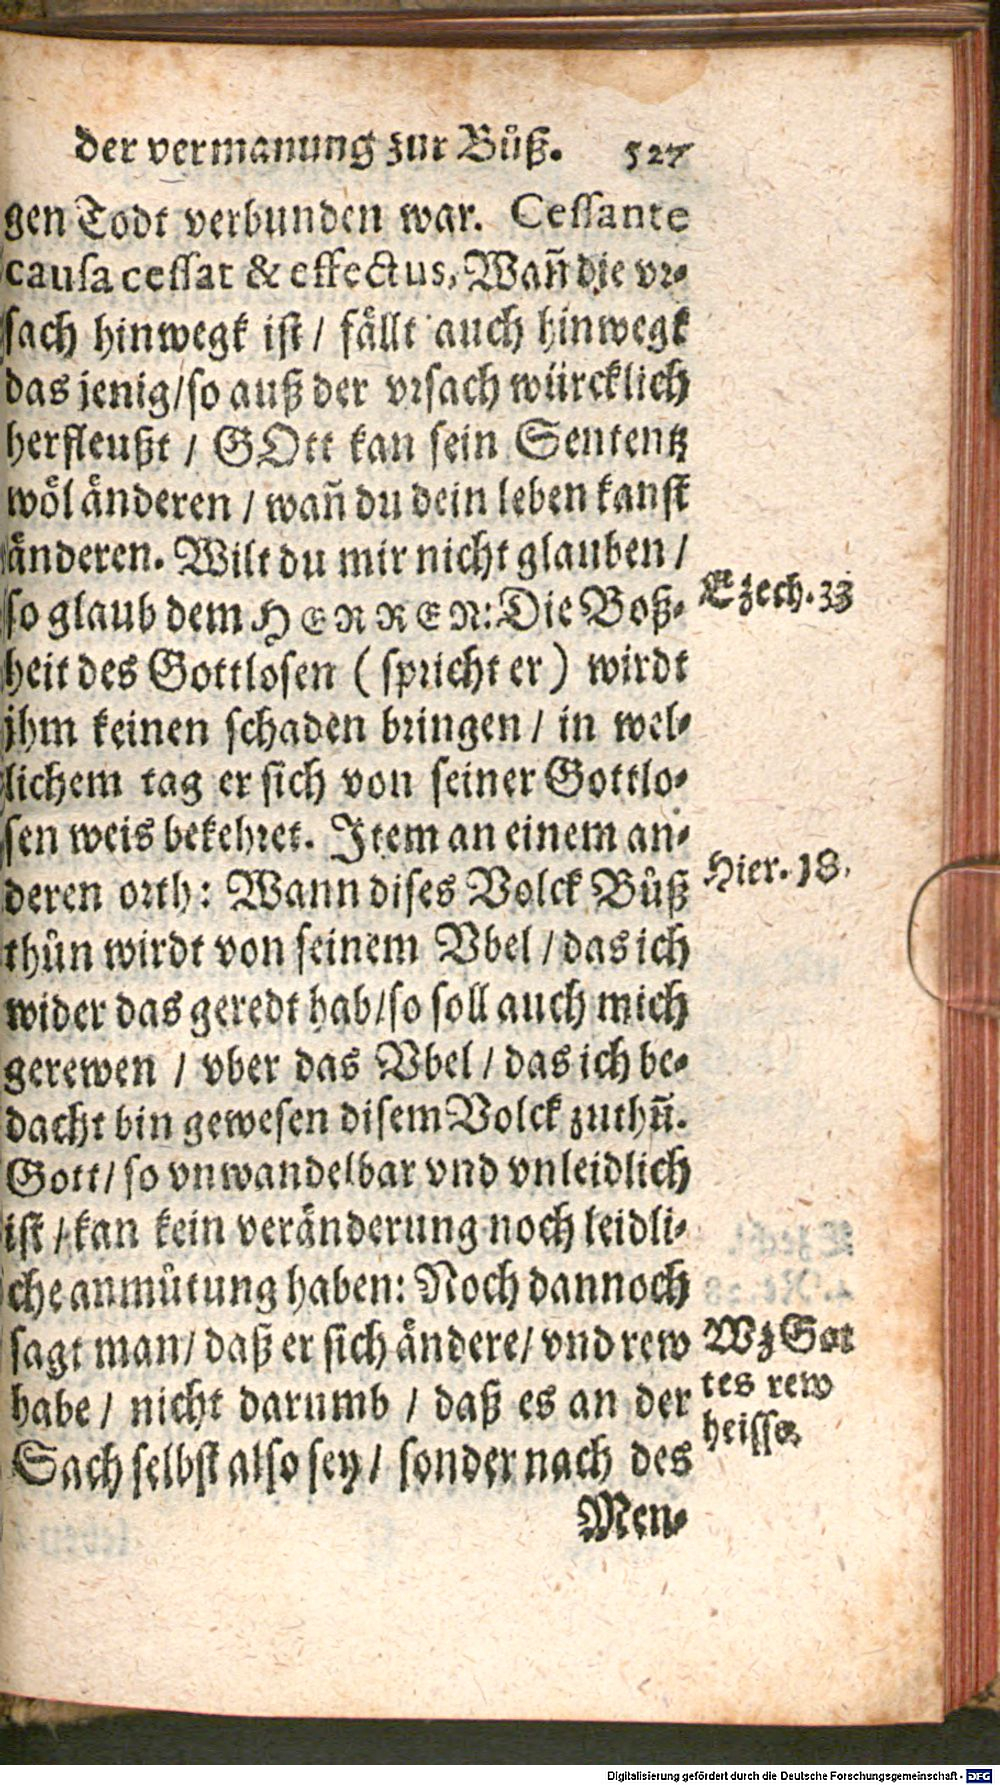 der vermanung zur Bůß. 527
gen Todt verbunden war. Cessante
causa cessat & effectus, Wañ die vr-
sach hinwegk ist / fällt auch hinwegk
das jenig/so auß der vrsach würcklich
herfleußt / GOtt kan sein Sententz
wol änderen / wañ du dein leben kanst
änderen. Wilt du mir nicht glauben /
so glaub dem HERREN: Die Boß-
Ezech. 33
heit des Gottlosen ( spricht er ) wirdt
jhm keinen schaden bringen / in wel-
lichem tag er sich von seiner Gottlo-
sen weis bekehret. Item an einem an-
deren orth: Wann dises Volck Bůß
Hier. 18.
thůn wirdt von seinem Vbel / das ich
wider das geredt hab/so soll auch mich
gerewen / vber das Vbel / das ich be-
dacht bin gewesen disem Volck zuthůn̄.
Gott/ so vnwandelbar vnd vnleidlich
ist / kan kein veränderung noch leidli-
che anmůtung haben: Noch dannoch
sagt man/ daß er sich ändere/ vnd rew
habe / nicht darumb / daß es an der
Sach selbst also sey / sonder nach des
Wz Got
tes rew
heisse.
Men-
Digitalisierung gefördert durch die Deutsche Forschungsgemeinschaft - DFG